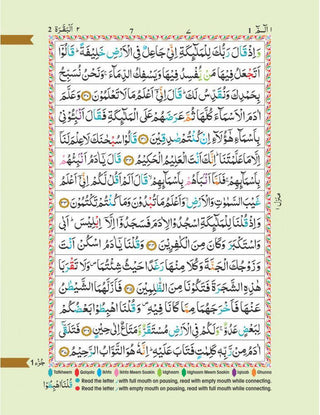 2 اَلْبَقَرَة ٢
7
٧
الٓمّٓ ١ 1
وَاِذْ قَالَ رَبُّكَ لِلْمَلٰٓئِكَةِ اِنِّيْ جَاعِلٌ فِي الْاَرْضِ خَلِيْفَةً ؕ قَالُوْٓا
اَتَجْعَلُ فِيْهَا مَنْ يُّفْسِدُ فِيْهَا وَيَسْفِكُ الدِّمَآءَ ۚ وَنَحْنُ نُسَبِّحُ
بِحَمْدِكَ وَنُقَدِّسُ لَكَ ؕ قَالَ اِنِّيْٓ اَعْلَمُ مَا لَا تَعْلَمُوْنَ ﴿٣٠﴾ وَعَلَّمَ
اٰدَمَ الْاَسْمَآءَ كُلَّهَا ثُمَّ عَرَضَهُمْ عَلَى الْمَلٰٓئِكَةِ فَقَالَ اَنْۢبِـُٔوْنِيْ
بِاَسْمَآءِ هٰٓؤُلَآءِ اِنْ كُنْتُمْ صٰدِقِيْنَ ﴿٣١﴾ قَالُوْا سُبْحٰنَكَ لَا عِلْمَ لَنَآ
اِلَّا مَا عَلَّمْتَنَا ؕ اِنَّكَ اَنْتَ الْعَلِيْمُ الْحَكِيْمُ ﴿٣٢﴾ قَالَ يٰٓاٰدَمُ اَنْۢبِئْهُمْ
بِاَسْمَآئِهِمْ ۚ فَلَمَّآ اَنْۢبَاَهُمْ بِاَسْمَآئِهِمْ ۙ قَالَ اَلَمْ اَقُلْ لَّكُمْ اِنِّيْٓ اَعْلَمُ
غَيْبَ السَّمٰوٰتِ وَالْاَرْضِ ۙ وَاَعْلَمُ مَا تُبْدُوْنَ وَمَا كُنْتُمْ تَكْتُمُوْنَ ﴿٣٣﴾
وَاِذْ قُلْنَا لِلْمَلٰٓئِكَةِ اسْجُدُوْا لِاٰدَمَ فَسَجَدُوْٓا اِلَّآ اِبْلِيْسَ ؕ اَبٰى
وَاسْتَكْبَرَ ۫ وَكَانَ مِنَ الْكٰفِرِيْنَ ﴿٣٤﴾ وَقُلْنَا يٰٓاٰدَمُ اسْكُنْ اَنْتَ
وَزَوْجُكَ الْجَنَّةَ وَكُلَا مِنْهَا رَغَدًا حَيْثُ شِئْتُمَا ۪ وَلَا تَقْرَبَا
هٰذِهِ الشَّجَرَةَ فَتَكُوْنَا مِنَ الظّٰلِمِيْنَ ﴿٣٥﴾ فَاَزَلَّهُمَا الشَّيْطٰنُ
عَنْهَا فَاَخْرَجَهُمَا مِمَّا كَانَا فِيْهِ ۪ وَقُلْنَا اهْبِطُوْا بَعْضُكُمْ
لِبَعْضٍ عَدُوٌّ ۚ وَلَكُمْ فِي الْاَرْضِ مُسْتَقَرٌّ وَّمَتَاعٌ اِلٰى حِيْنٍ ﴿٣٦﴾ فَتَلَقّٰٓى
اٰدَمُ مِنْ رَّبِّهٖ كَلِمٰتٍ فَتَابَ عَلَيْهِ ؕ اِنَّهٗ هُوَ التَّوَّابُ الرَّحِيْمُ ﴿٣٧﴾
منزل
1 جزء ١
Tafkheem Qalqala Ikhfa Ikhfa Meem Saakin Idgham Idgham Meem Saakin Iqlaab Ghunna
Read the letter with full mouth on pausing, read with empty mouth while connecting.
Read the letter with empty mouth on pausing, read with full mouth while connecting.
قُلْنَا اهْبِطُوْا